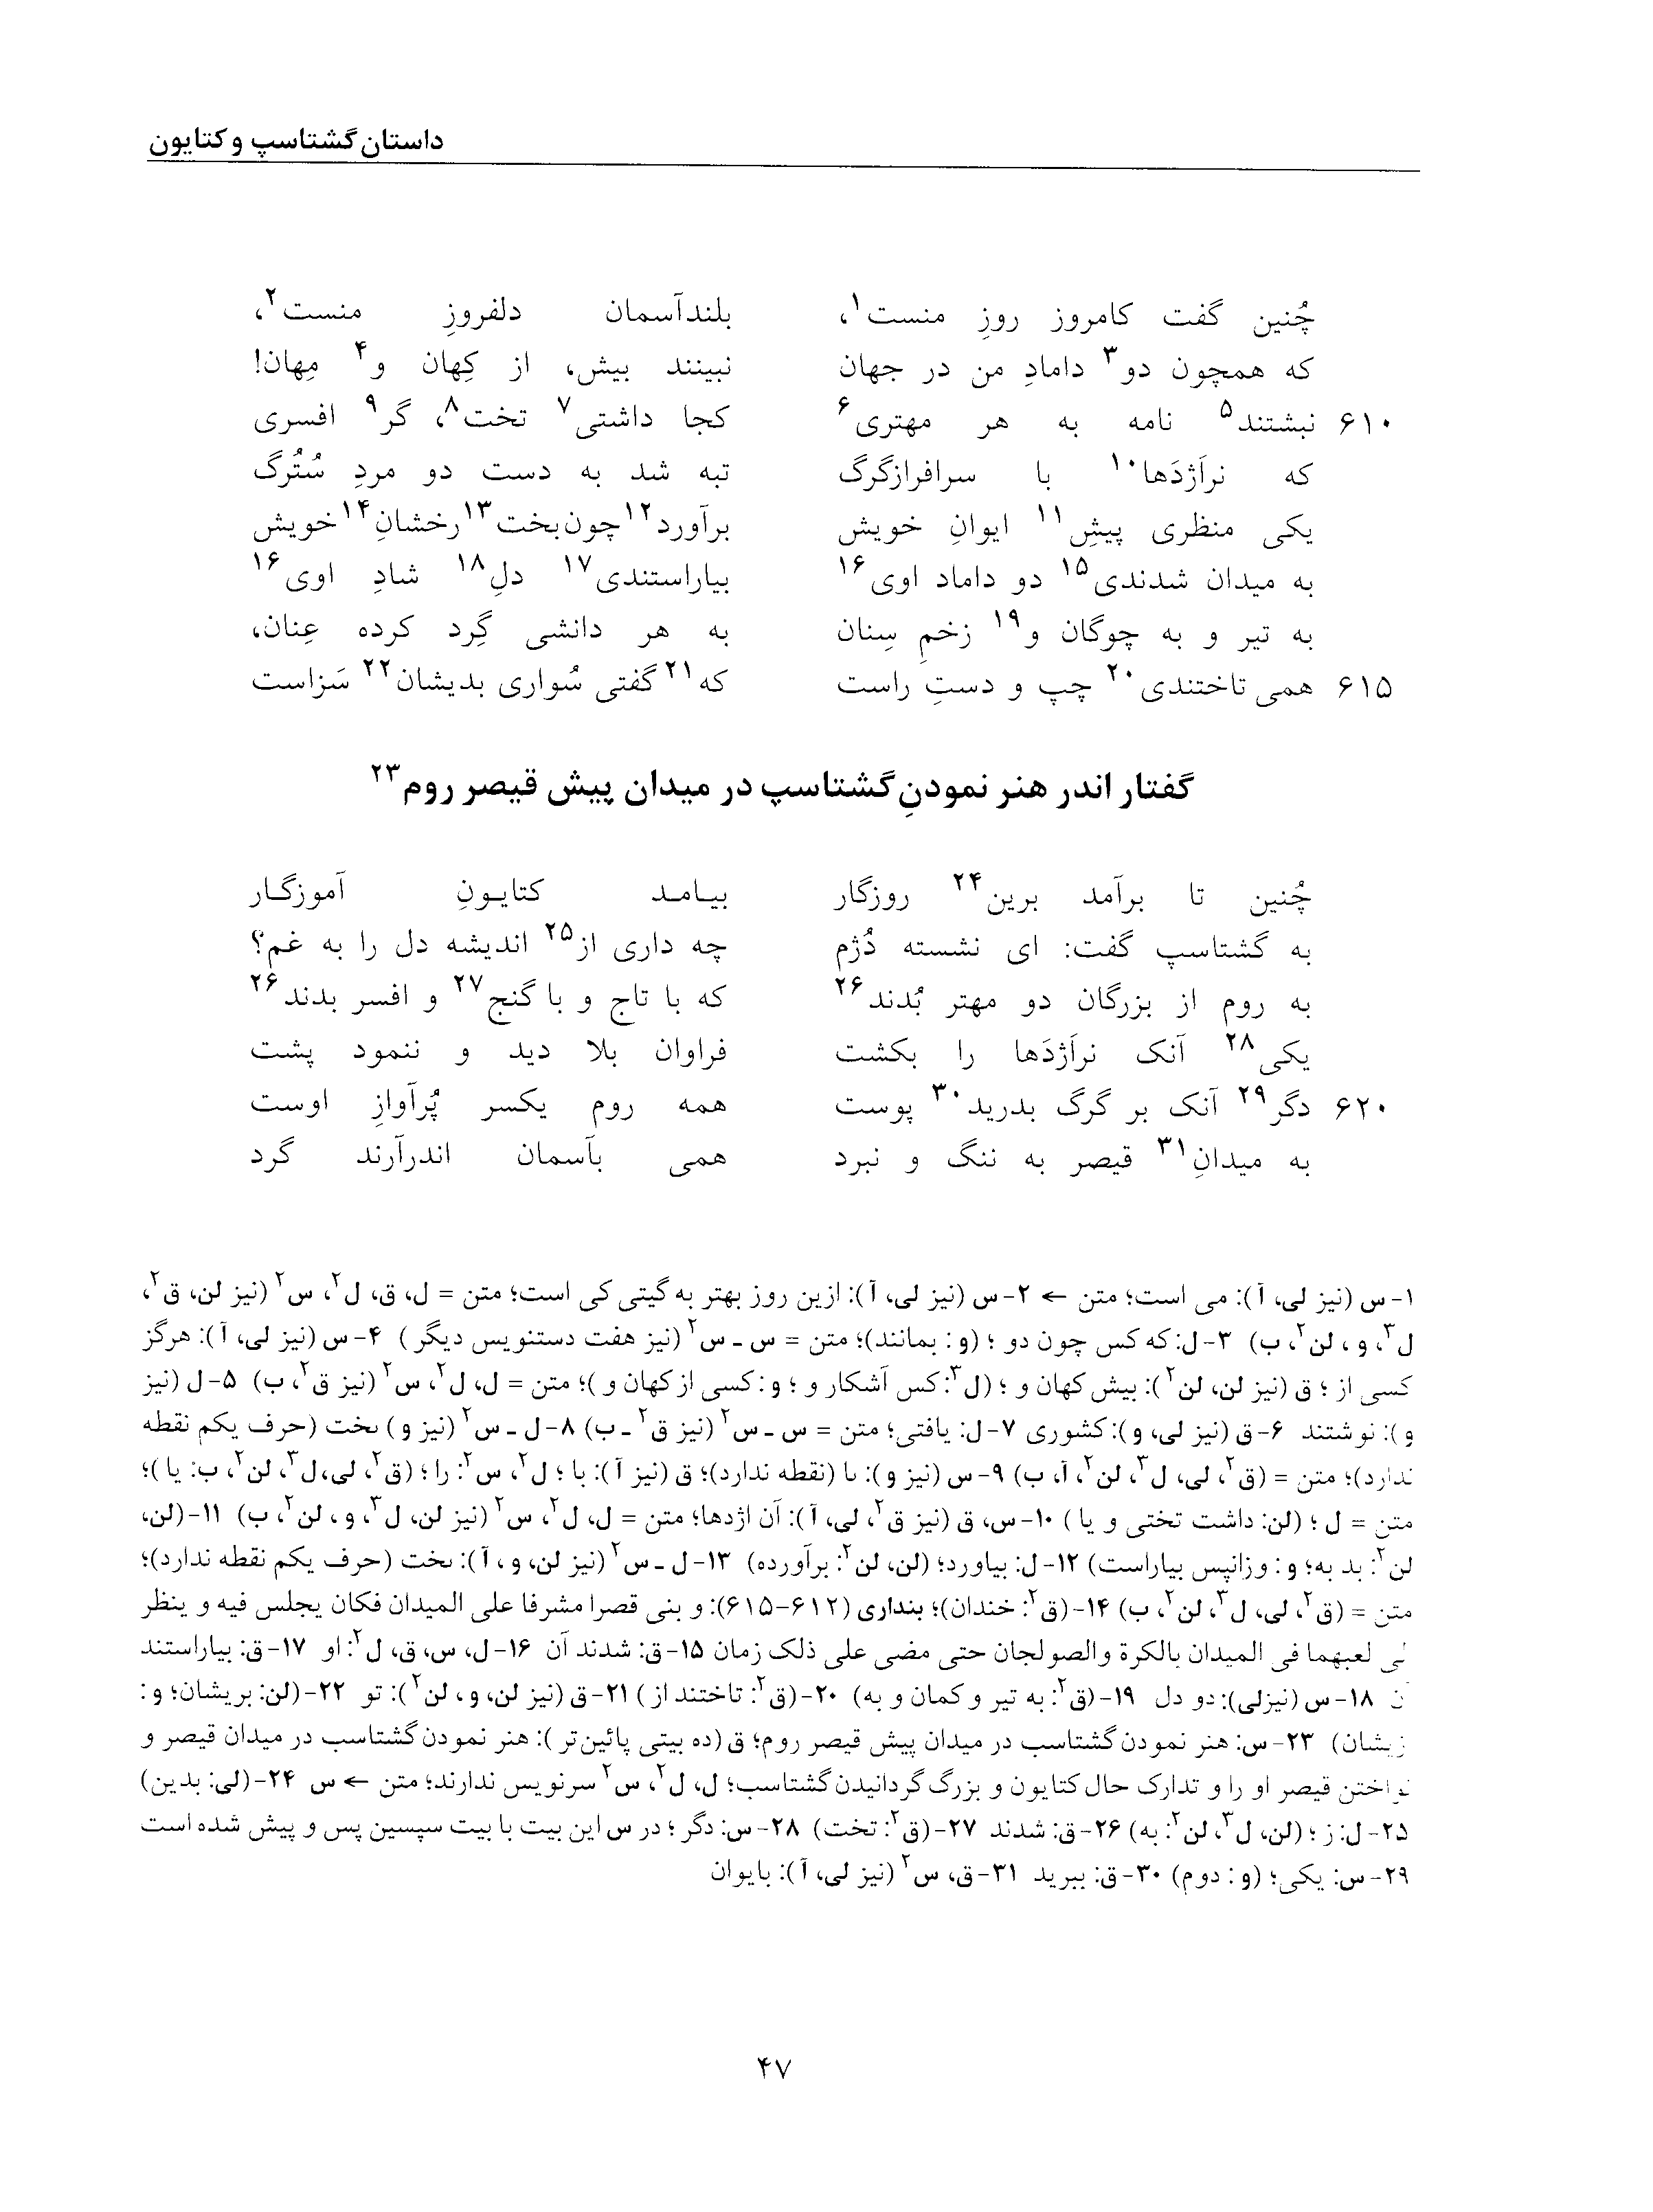 داستان گشتاسپ و کتایون
چُنین گفت کامروز روزِ منست۱، بلندآسمان دلفروزِ منست۲،
که همچون دو۳ دامادِ من در جهان نبینند بیش، از کِهان و۴ مِهان!
۶۱۰ نبشتند۵ نامه به هر مهتری۶ کجا داشتی۷ تخت۸، گر۹ افسری
که نراَژدَها۱۰ با سرافرازگرگ تبه شد به دست دو مردِ سُتُرگ
یکی منظری پیشِ۱۱ ایوانِ خویش برآورد۱۲ چون بخت۱۳ رخشانِ۱۴ خویش
به میدان شدندی۱۵ دو داماد اوی۱۶ بیاراستندی۱۷ دلِ۱۸ شادِ اوی۱۶
به تیر و به چوگان و۱۹ زخمِ سِنان به هر دانشی گِرد کرده عِنان،
۶۱۵ همی تاختندی۲۰ چپ و دستِ راست که۲۱ گفتی سُواری بدیشان۲۲ سَزاست
گفتار اندر هنر نمودنِ گشتاسپ در میدان پیش قیصر روم۲۳
چُنین تا برآمد برین۲۴ روزگار بیـامـد کتایـونِ آموزگـار
به گشتاسپ گفت: ای نشسته دُژم چه داری از۲۵ اندیشه دل را به غم؟
به روم از بزرگان دو مهتر بُدند۲۶ که با تاج و با گنج۲۷ و افسر بدند۲۶
یکی۲۸ آنک نراَژدَها را بکشت فراوان بلا دید و ننمود پشت
۶۲۰ دگر۲۹ آنک بر گرگ بدرید۳۰ پوست همه روم یکسر پُرآوازِ اوست
به میدانِ۳۱ قیصر به ننگ و نبرد همی بآسمان اندرآرند گرد
۱- س (نیز لی، آ): می است؛ متن ← ۲- س (نیز لی، آ): ازین روز بهتر به گیتی کی است؛ متن = ل، ق، ل۲، س۲ (نیز لن، ق۲،
ل۳، و، لن۲، ب) ۳- ل: که کس چون دو؛ (و: بمانند)؛ متن = س ـ س۲ (نیز هفت دستنویس دیگر) ۴- س (نیز لی، آ): هرگز
کسی از؛ ق (نیز لن، لن۲): بیش کهان و؛ (ل۳: کس آشکار و؛ و: کسی از کهان و)؛ متن = ل، ل۲، س۲ (نیز ق۲، ب) ۵- ل (نیز
و): نوشتند ۶- ق (نیز لی، و): کشوری ۷- ل: یافتی؛ متن = س ـ س۲ (نیز ق۲ ـ ب) ۸- ل ـ س۲ (نیز و) ٮخت (حرف یکم نقطه
ندارد)؛ متن = (ق۲، لی، ل۳، لن۲، آ، ب) ۹- س (نیز و): ٮا (نقطه ندارد)؛ ق (نیز آ): با؛ ل۲، س۲: را؛ (ق۲، لی، ل۳، لن۲، ب: یا)؛
متن = ل؛ (لن: داشت تختی و یا) ۱۰- س، ق (نیز ق۲، لی، آ): آن اژدها؛ متن = ل، ل۲، س۲ (نیز لن، ل۳، و، لن۲، ب) ۱۱- (لن،
لن۲: بد به؛ و: وزانپس بیاراست) ۱۲- ل: بیاورد؛ (لن، لن۲: برآورده) ۱۳- ل ـ س۲ (نیز لن، و، آ): ٮخت (حرف یکم نقطه ندارد)؛
متن = (ق۲، لی، ل۳، لن۲، ب) ۱۴- (ق۲: خندان)؛ بنداری (۶۱۲-۶۱۵): و بنی قصرا مشرفا علی المیدان فکان یجلس فیه و ینظر
لعبهما فی المیدان بالکرة والصولجان حتی مضی علی ذلک زمان ۱۵- ق: شدند آن ۱۶- ل، س، ق، ل۲: او ۱۷- ق: بیاراستند
۱۸- س (نیز لی): دو دل ۱۹- (ق۲: به تیر و کمان و به) ۲۰- (ق۲: تاختند از) ۲۱- ق (نیز لن، و، لن۲): تو ۲۲- (لن: بریشان؛ و:
زیشان) ۲۳- س: هنر نمودن گشتاسب در میدان پیش قیصر روم؛ ق (ده بیتی پائین‌تر): هنر نمودن گشتاسب در میدان قیصر و
نواختن قیصر او را و تدارک حال کتایون و بزرگ گردانیدن گشتاسب؛ ل، ل۲، س۲ سرنویس ندارند؛ متن ← س ۲۴- (لی: بدین)
۲۵- ل: ز؛ (لن، ل۳، لن۲: به) ۲۶- ق: شدند ۲۷- (ق۲: تخت) ۲۸- س: دگر؛ در س این بیت با بیت سپسین پس و پیش شده است
۲۹- س: یکی؛ (و: دوم) ۳۰- ق: ببرید ۳۱- ق، س۲ (نیز لی، آ): بایوان
۴۷